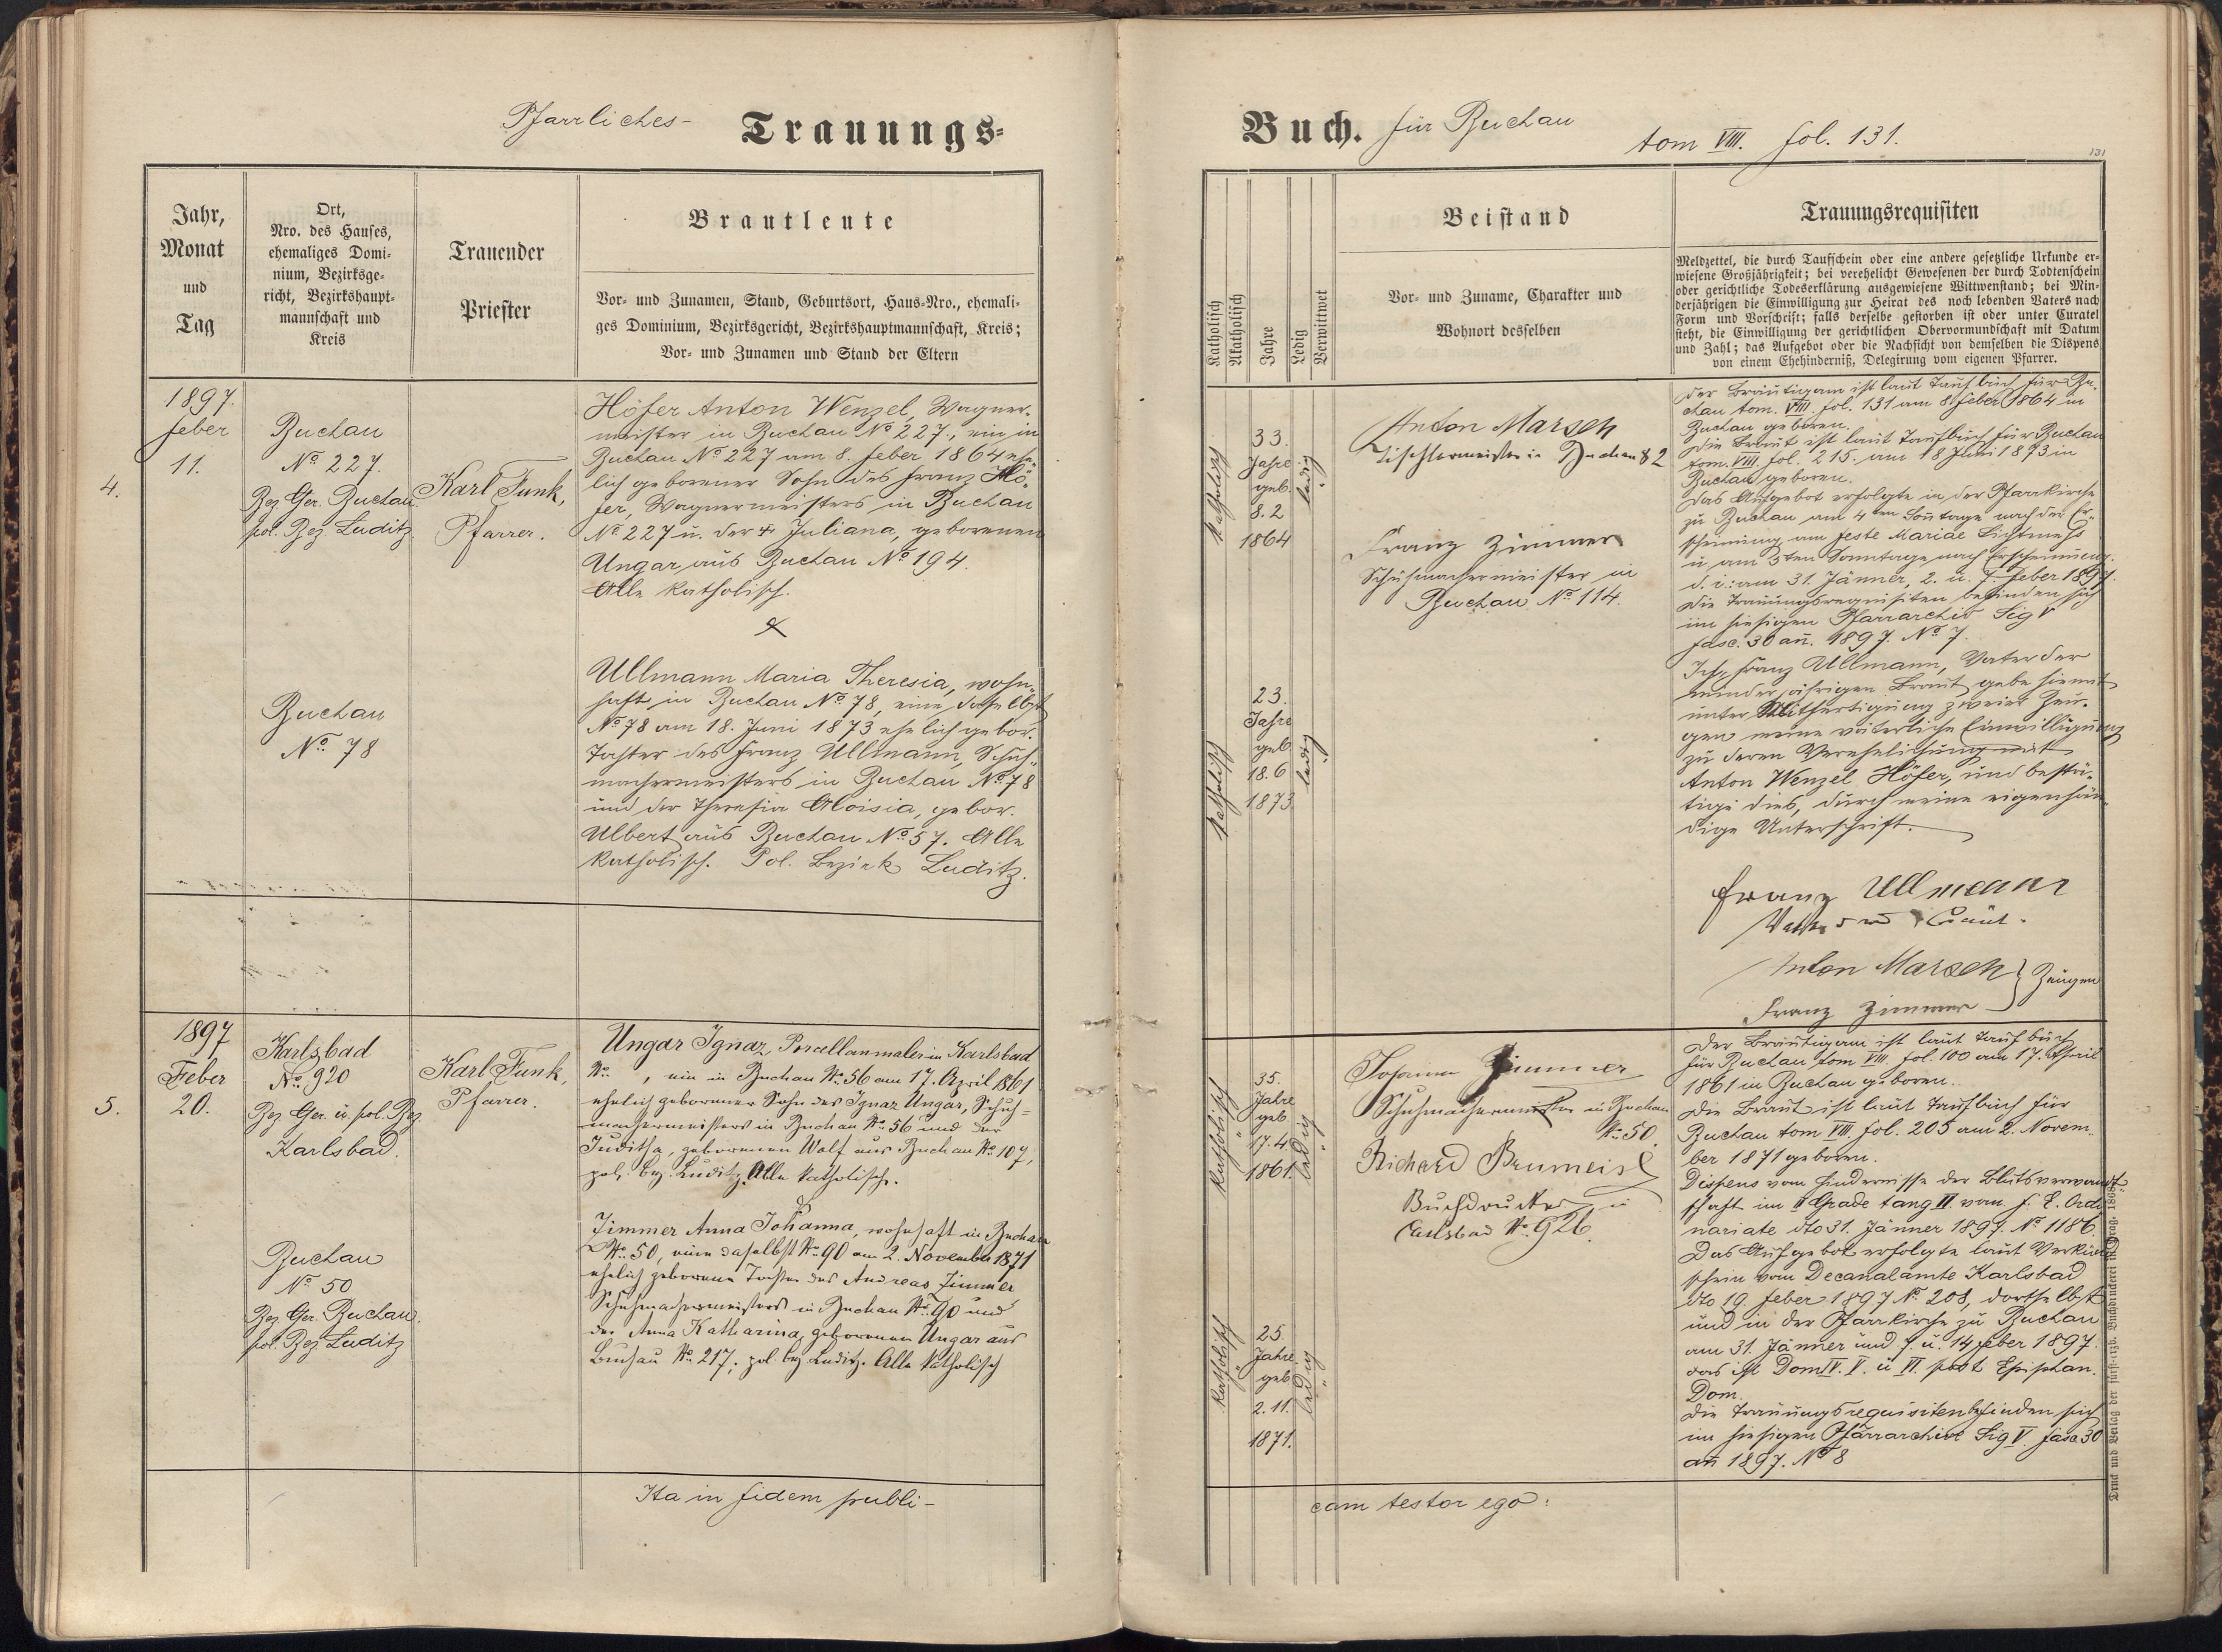 Pfarrliches- Trauungs-
Buch. für Buchau
tom VIII. fol. 131.
131
Jahr,
Monat
und
Tag
Ort,
Nro. des Hauses,
ehemaliges Domi-
nium, Bezirksge-
richt, Bezirkshaupt-
mannschaft und
Kreis
Trauender
Priester
Brautleute
Vor- und Zunamen, Stand, Geburtsort, Haus-Nro., ehemali-
ges Dominium, Bezirksgericht, Bezirkshauptmannschaft, Kreis;
Vor- und Zunamen und Stand der Eltern
Katholisch
Akatholisch
Jahre
Ledig
Verwittwet
Beistand
Vor- und Zuname, Charakter und
Wohnort desselben
Trauungsrequisiten
Meldzettel, die durch Taufschein oder eine andere gesetzliche Urkunde er-
wiesene Großjährigkeit; bei verehelicht Gewesenen der durch Todtenschein
oder gerichtliche Todeserklärung ausgewiesene Wittwenstand; bei Min-
derjährigen die Einwilligung zur Heirat des noch lebenden Vaters nach
Form und Vorschrift; falls derselbe gestorben ist oder unter Curatel
steht, die Einwilligung der gerichtlichen Obervormundschaft mit Datum
und Zahl; das Aufgebot oder die Nachsicht von demselben die Dispens
von einem Ehehinderniß, Delegirung vom eigenen Pfarrer.
4.
1897.
Feber
11.
Buchau
No. 227.
Bez. Ger. Buchau
pol. Bez. Luditz.
Karl Funk,
Pfarrer.
Höfer Anton Wenzel, Wagner-
meister in Buchau No 227., ein in
Buchau No. 227 am 8. Feber 1864 ehe-
lich geborener Sohn des Franz Hö-
fer, Wagnermeisters in Buchau
No 227 u. der + Juliana, geborenen
Ungar aus Buchau No 194.
Alle katholisch.
&
Buchau
No. 78
Ullmann Maria Theresia, wohn-
haft in Buchau No. 78, eine daselbst
No 78 am 18. Juni 1873 ehelich gebor.
Tochter des Franz Ullmann, Schuh-
machermeisters in Buchau No. 78
und der Theresia Aloisia, gebor.
Ulbert aus Buchau No. 57. Alle
katholisch. Pol. Bezirk Luditz.
Katholisch
33.
Jahre
geb.
8. 2
1864
ledig
Katholisch
23.
Jahre
geb
18. 6
1873.
ledig
Anton Marsch
Tischlermeister in Buchau 82
Franz Zimmer
Schuhmachermeister in
Buchau No. 114.
Der Bräutigam ist laut Taufbuch für Bu-
chau tom. VIII. fol. 131 am 8. Feber 1864 in
Buchau geboren.
Die Braut ist laut Taufbuch für Buchau
tom. VIII. fol. 215. am 18 Juni 1873 in
Buchau geboren.
Das Aufgebot erfolgte in der Pfarrkirche
zu Buchau am 4ten Sonntage nach der Er-
scheinung, am Feste Mariae Lichtmeß
u. am 5ten Sonntage nach Erscheinung.
d. i.: am 31. Jänner, 2. u. 7. Feber 1897.
Die Trauungsrequisiten befinden sich
im hiesigen Pfarrarchiv Sig V
fasc. 30 an. 1897. No. 7.
Ich, Franz Ullmann, Vater der
minderjährigen Braut gebe hiemit
unter Mitfertigung zweier Zeu-
gen meine väterliche Einwilligung
zu deren Verehelichung mit
Anton Wenzel Höfer, und bestä-
tige dies, durch meine eigenhän-
dige Unterschrift.
Franz Ullmann
Vater der Braut.
Anton Marsch } Zeugen
Franz Zimmer
5.
1897
Feber
20.
Karlsbad
No. 920
Bez. Ger. u. pol. Bez.
Karlsbad.
Karl Funk,
Pfarrer.
Ungar Ignaz, Porcellanmaler in Karlsbad
No. , ein in Buchau No. 56 am 17. April 1861
ehelich geborener Sohn des Ignaz Ungar, Schuh-
machermeisters in Buchau No. 56 und der
Juditha, geborenen Wolf aus Buchau No 107,
pol. bez. Luditz. Alle katholisch.
&
Buchau
No 50
Bez. Ger. Buchau.
pol. Bez. Luditz
Zimmer Anna Johanna, wohnhaft in Buchau
No. 50, eine daselbst No. 90 am 2. November 1871
ehelich geborene Tochter des Andreas Zimmer
Schuhmachermeisters in Buchau No. 90 und
der Anna Katharina, geborenen Ungar aus
Buchau No. 217; pol. bez. Luditz. Alle katholisch
Katholisch
35.
Jahre
geb
17. 4.
1861.
ledig
Katholisch
25.
Jahre
geb
2. 11.
1871.
ledig
Zimmer
Schuhmachermeister in Buchau
No. 50.
Richard
Buchdrucker in
Carlsbad No. 926.
Der Bräutigam ist laut Taufbuch
für Buchau tom VIII. fol. 100 am 17. April
1861 in Buchau geboren.
Die Braut ist laut Taufbuch für
Buchau tom VIII. fol. 205 am 2. Novem-
ber 1871 geboren.
Dispens vom Hindernisse der Blutsverwandt-
schaft im II Grade tang III vom f. E. Ordi
nariate dto 31. Jänner 1897. No 1186.
Das Aufgebot erfolgte laut Verkünd
schein vom Decanalamte Karlsbad
dto 19. Feber 1897 No. 208, dortselbst
und in der Pfarrkirche zu Buchau
am 31. Jänner und 7. u. 14 Feber 1897.
das ist Dom IV. V. u VI. post Epiphan.
Dom.
Die Trauungsrequisiten befinden sich
im hiesigen Pfarrarchive Sig V. fasc 30
an 1897. No 8
Ita in fidem publi-
cam testor ego:
Druck und Verlag der fürst-erzb. Buchdruckerei in Prag. 1868.